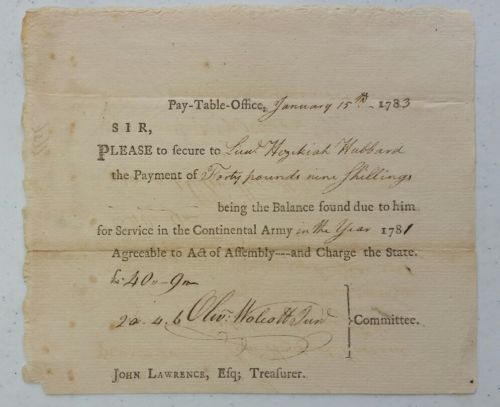 Pay-Table-Office, January 15th - 1783
SIR,
PLEASE to secure to Lieut. Hezekiah Hubbard
the Payment of Forty pounds nine Shillings
being the Balance found due to him
for Service in the Continental Army in the Year 1781
Agreeable to Act of Assembly---and Charge the State.
40 - 9
20 . 4 . 6 Olivr. Wolcott Junr } Committee.
JOHN LAWRENCE, Esq; Treasurer.